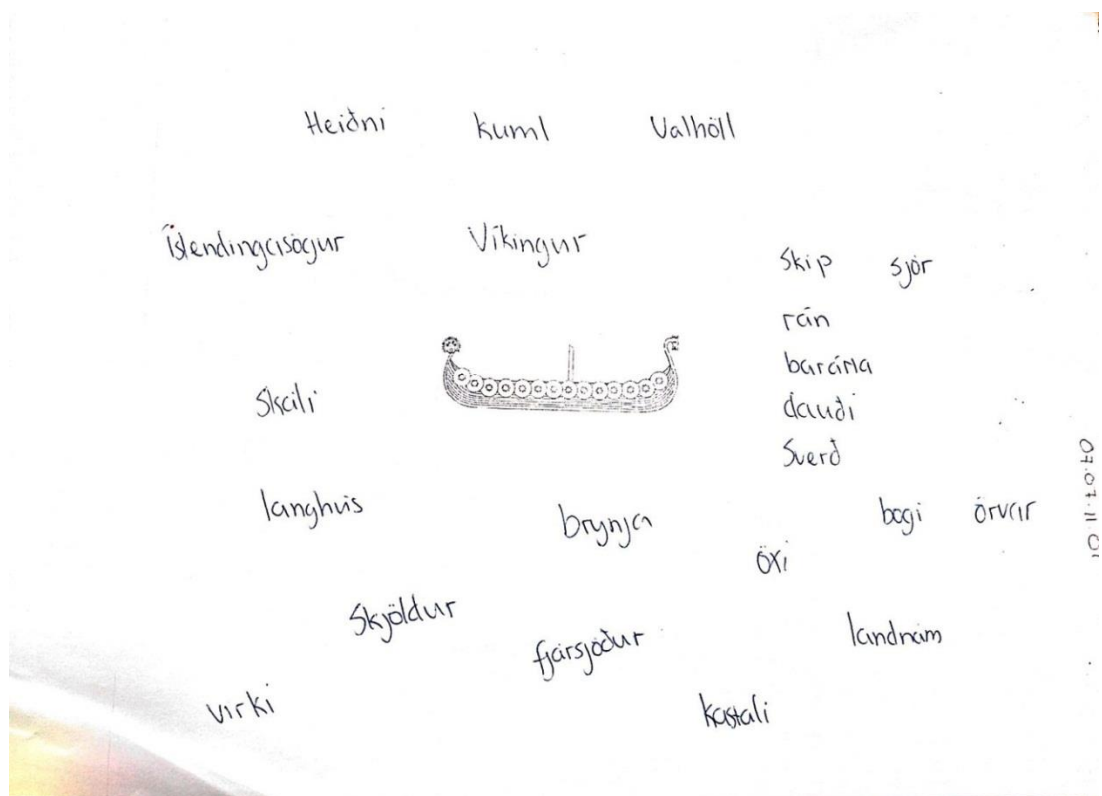 Heiðni kuml Valhöll
Íslendingasögur Víkingur
Skip sjór
rán
barátta
dauði
Skáli
Sverð
langhús brynja bogi örvar
öxi
Skjöldur fjársjóður landnám
virki kastali
07.07.11.01